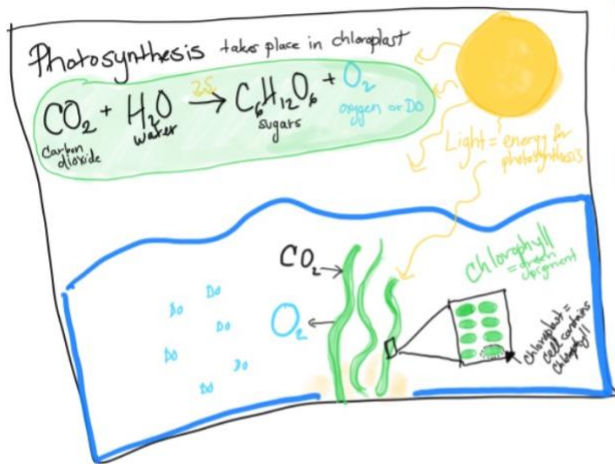 Photosynthesis takes place in chloroplast
CO2 + H2O → C6H12O6 + O2
carbon dioxide
water
sugars
oxygen or DO
Light = energy for
photosynthesis
CO2
O2
Do
Do
Do
Do
Do
Do
Chlorophyll
= green
pigment
Chloroplast =
Cell contains
Chlorophyll